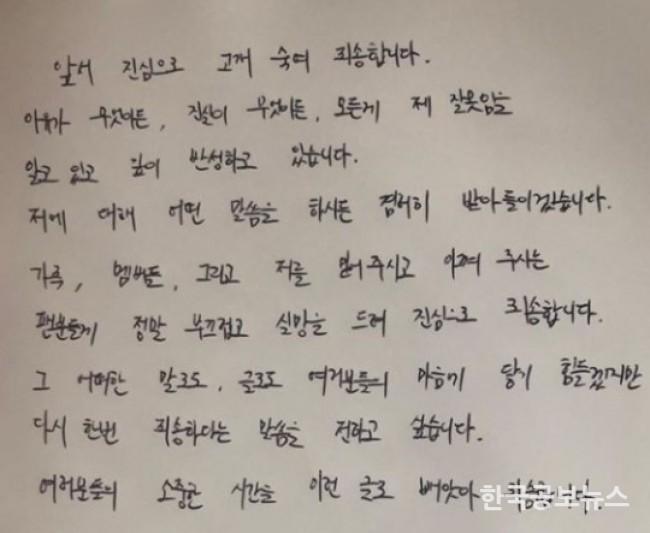 앞서 진심으로 고개 숙여 죄송합니다.
이유가 무엇이든, 진실이 무엇이든, 모든게 제 잘못임을
알고 있고 깊이 반성하고 있습니다.
저에 대해 어떤 말씀을 하시든 겸허히 받아들이겠습니다.
가족, 멤버들, 그리고 저를 믿어주시고 아껴 주시는
팬분들께 정말 부끄럽고 실망을 드려 진심으로 죄송합니다.
그 어떠한 말로도, 글로도 여러분들의 마음에 닿기 힘들겠지만
다시 한번 죄송하다는 말씀을 전하고 싶습니다.
여러분들의 소중한 시간을 이런 글로 빼앗아 죄송합니다.
한국공보뉴스